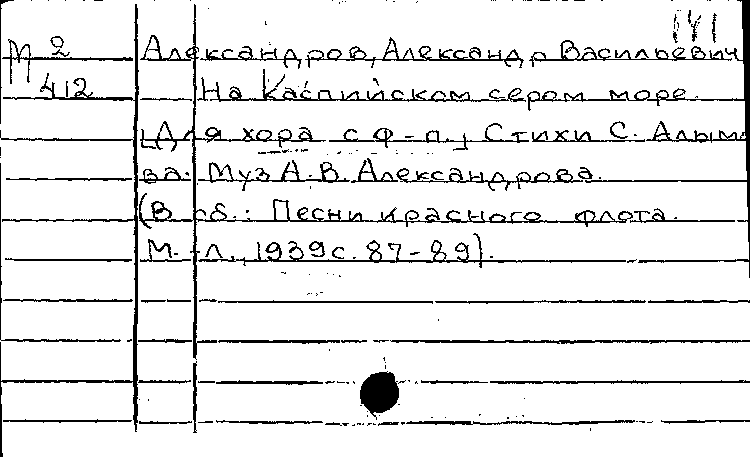 141
М 2
412
Александров, Александр Васильевич
На Каспийском сером море.
[Для хора с ф-п.] Стихи С. Алымо
ва. Муз А.В. Александрова.
(В сб.: Песни красного флота.
М.-Л., 1939 с. 87-89).